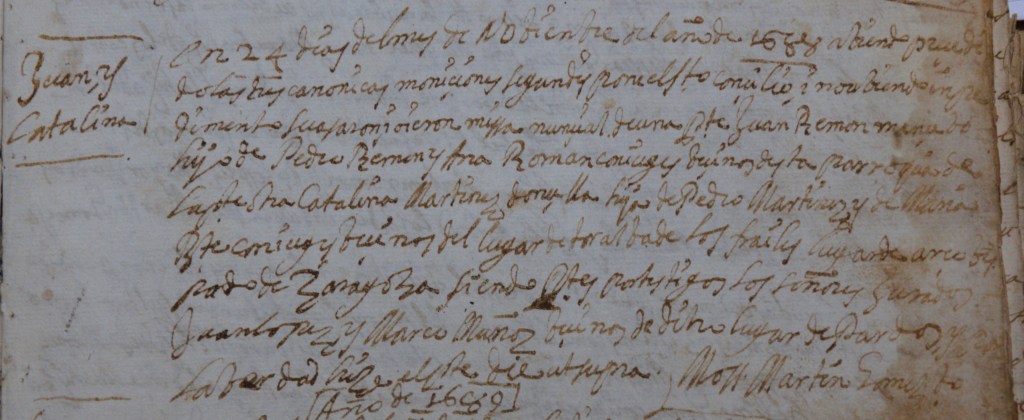 Juan y
Catalina
En 24 dias del mes de Nobienbre del año de 1688 abiendo precedi
do las tres canonicas moniciones segun dispone el sto conçilio i no abiendo inpe
dimento se casaron i oieron missa nunçial de una pte Juan Remon mançebo
hijo de Pedro Remon y Ana Roman conuges veçinos desta parroquia de
la pte otra Catalina Martinez donçella hija de Pedro Martinez y de Maria
conuges veçinos del lugar de toralba de los frailes lugar de arçobis
pado de Zaragoza siendo ptes por testigos los señores
Juan Lopez y Marco Muñoz veçinos de dho lugar de Pardos y
la verdad hize el pte die ut supra Mosn Martin
Año de 1689